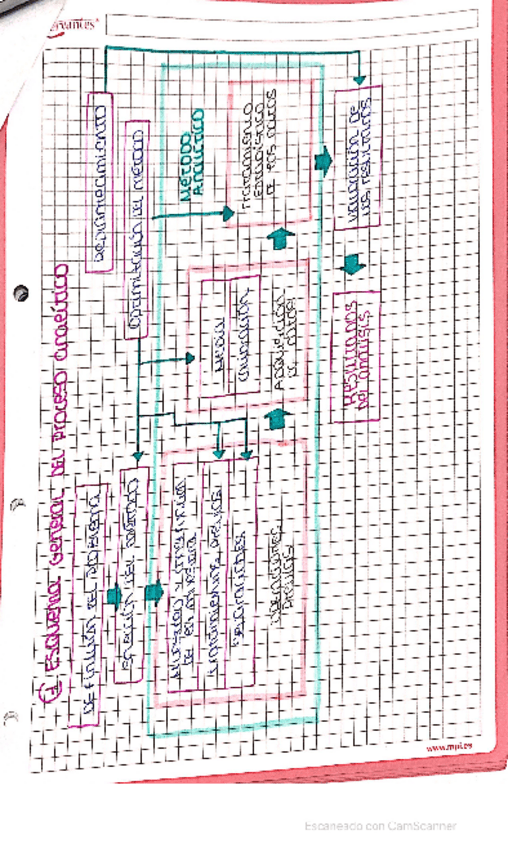 ① Esquema General del Proceso analítico
Definición del problema
Replanteamiento
Elección del método
Optimización del método
Método
Analítico
Obtención y
de la muestra
Tratamiento previo
Separaciones
Operaciones
previas
Medida
Adquisición
de datos
Tratamiento
estadístico
de los datos
Valoración de
los resultados
Resultados
del análisis
www.mpl.es
Escaneado con CamScanner